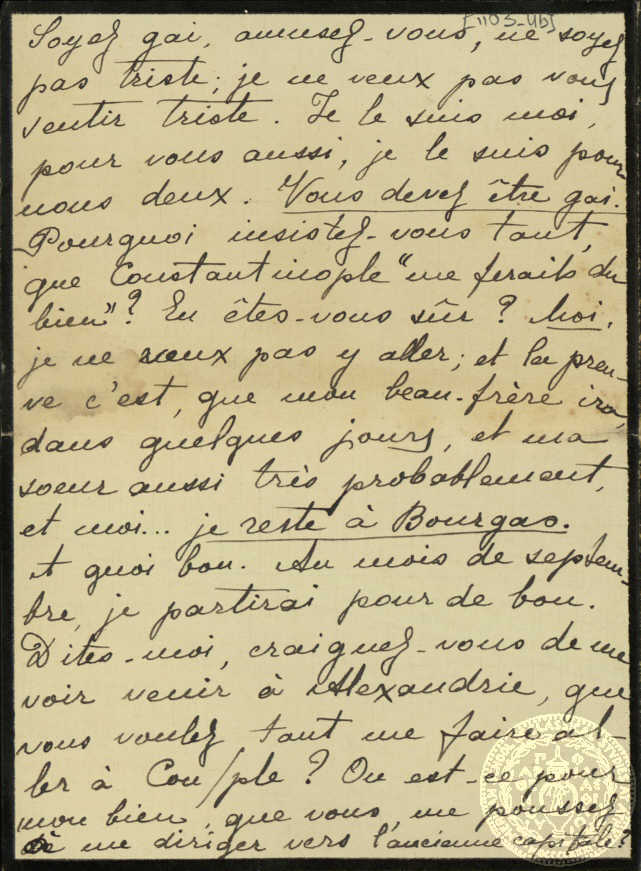 [1105-4b]
Soyez gai, amusez-vous, ne soyez
pas triste; je ne veux pas vous
sentir triste. Je le suis moi,
pour vous aussi, je le suis pour
nous deux. Vous devez être gai.
Pourquoi insistez-vous tant,
que Constantinople "me ferait du
bien"? En êtes-vous sûr? Moi,
je ne veux pas y aller; et la preu-
ve c'est, que mon beau-frère ira,
dans quelques jours, et ma
soeur aussi très probablement,
et moi... je reste à Bourgas.
A quoi bon. Au mois de septem-
bre, je partirai pour de bon.
Dites-moi, craignez-vous de me
voir venir à Alexandrie, que
vous voulez tant me faire al-
ler à Con/ple? Ou est-ce pour
mon bien, que vous me poussez
à me diriger vers l'ancienne capitale?